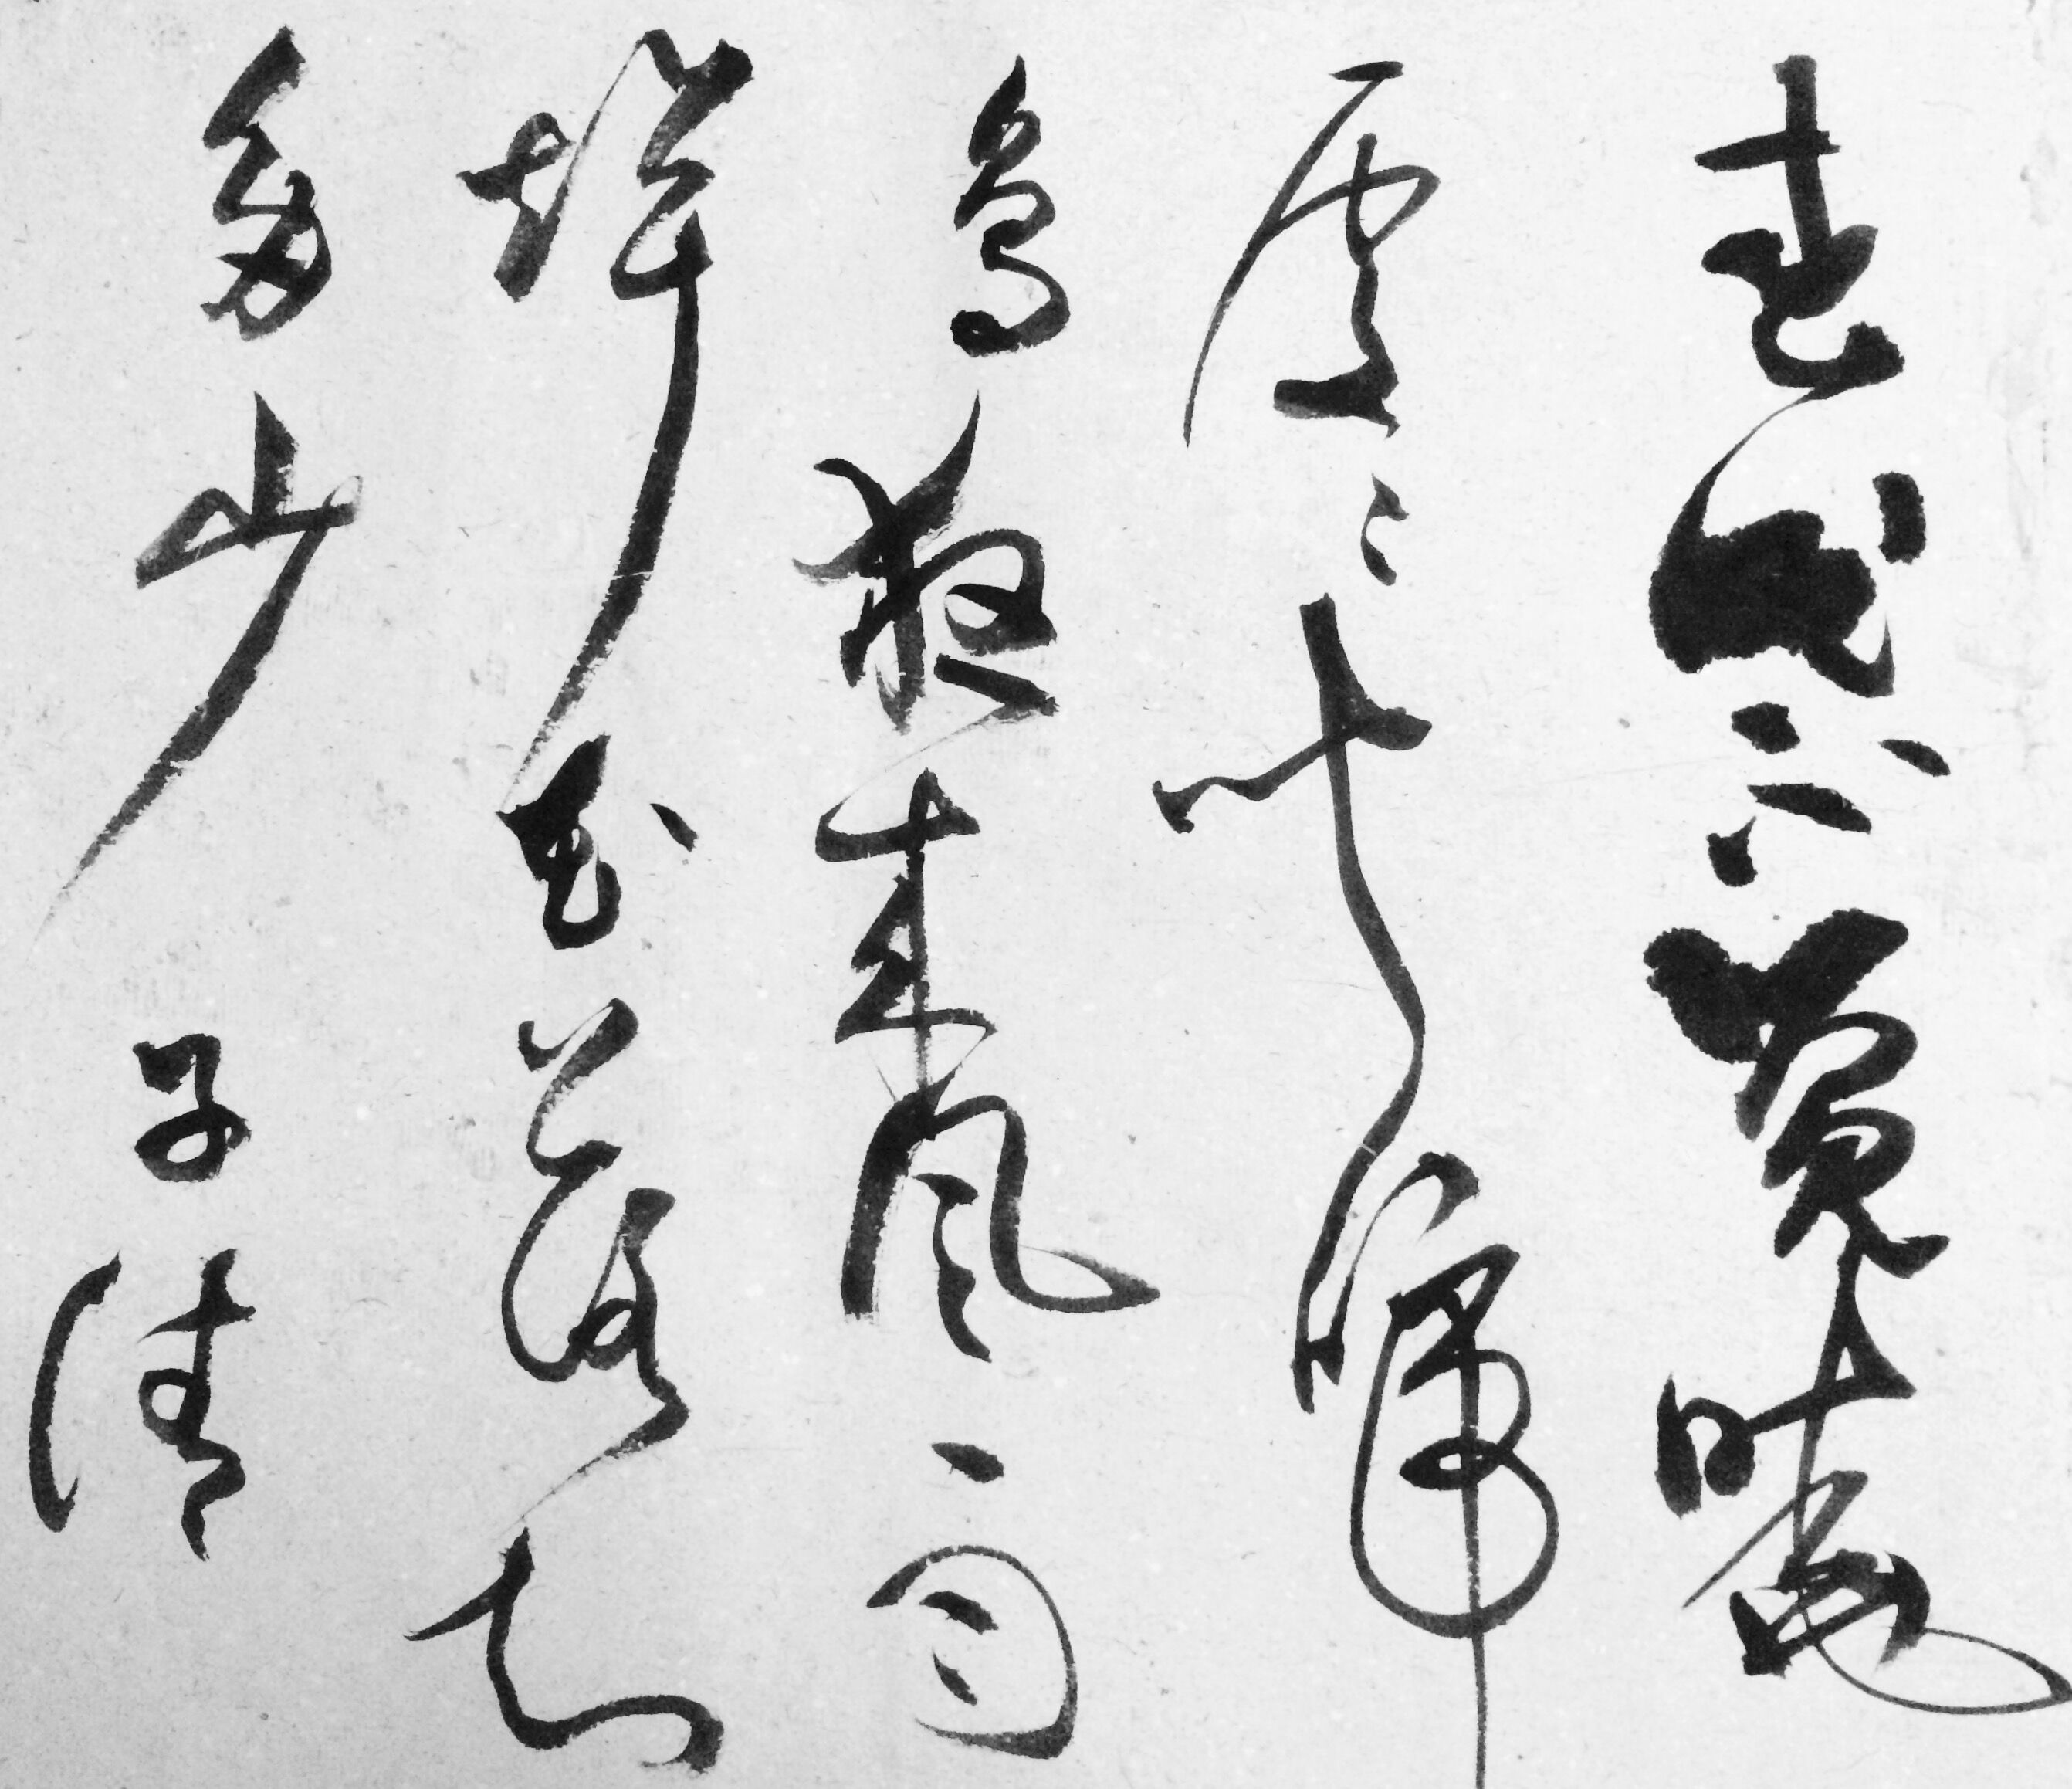 春眠不覺曉
處處聞啼
鳥夜來風雨
聲花落知
多少 子清